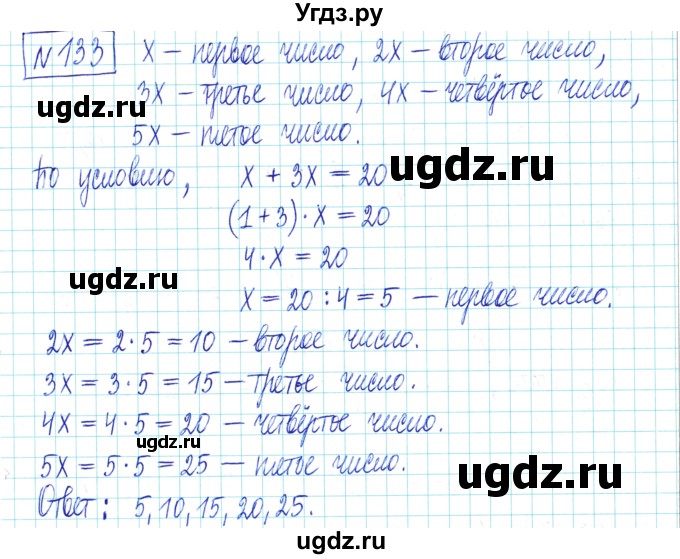 Угдз.ру
№133 x – первое число, 2x – второе число,
ugdz.ru
3x – третье число, 4x – четвёртое число,
5x – пятое число.
По условию, x + 3x = 20
ugdz.ru
(1+3)·x = 20
4·x = 20
ugdz.ru
x = 20 : 4 = 5 – первое число.
2x = 2·5 = 10 – второе число.
3x = 3·5 = 15 – третье число.
ugdz.ru
4x = 4·5 = 20 – четвёртое число.
ugdz.ru
5x = 5·5 = 25 – пятое число.
ugdz.ru
Ответ: 5, 10, 15, 20, 25.